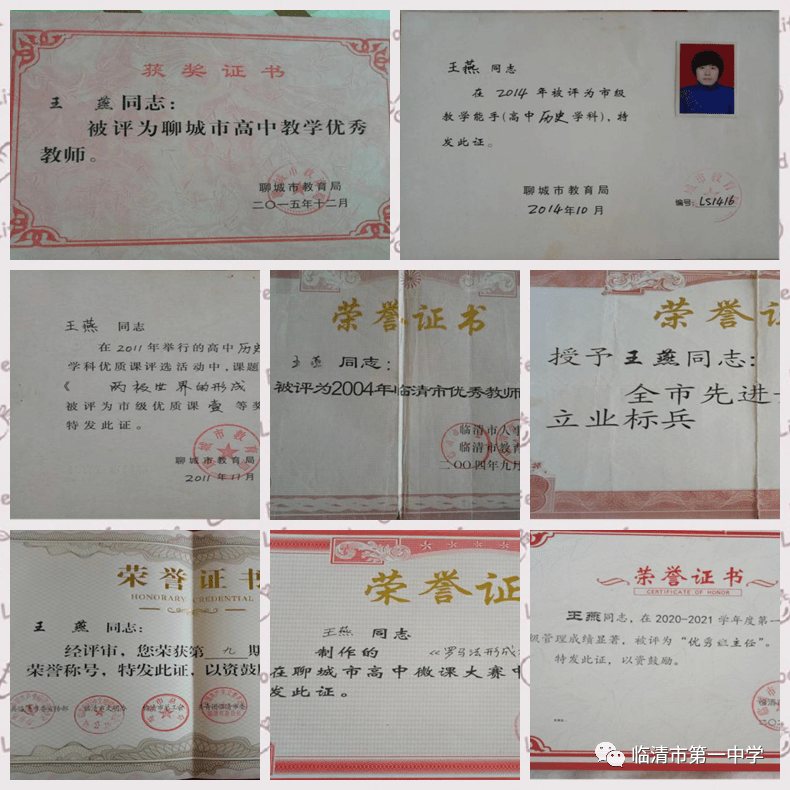 获奖证书
王 燕同志：
被评为聊城市高中教学优秀
教师。
聊城市教育局
二〇一五年十二月
王燕 同志
在 2014 年被评为市级
教学能手(高中 历史 学科)，特
发此证。
聊城市教育局
2014年10月
编号：LS1416
王燕 同志
在 2011 年举行的高中历史
学科优质课评选活动中，课题
《 两极世界的形成
被评为市级优质课 壹 等奖
特发此证。
聊城市教育局
2011 年 11 月
荣誉证书
王燕 同志：
被评为2004年临清市优秀教师
临清市人事
临清市教育
二〇〇四年九月
荣誉证
授予王燕同志：
全市先进
立业标兵
荣誉证书
HONORARY CREDENTIAL
王 燕 同志：
经评审，您荣获第 九 期
荣誉称号，特发此证，以资鼓励
荣誉证
王燕 同志
制作的 《罗马法形成
在聊城市高中微课大赛中
发此证。
荣誉证书
CERTIFICATE OF HONOR
王燕同志，在 2020-2021 学年度第一
级管理成绩显著，被评为“优秀班主任”。
特发此证，以资鼓励。
临清市第一中学